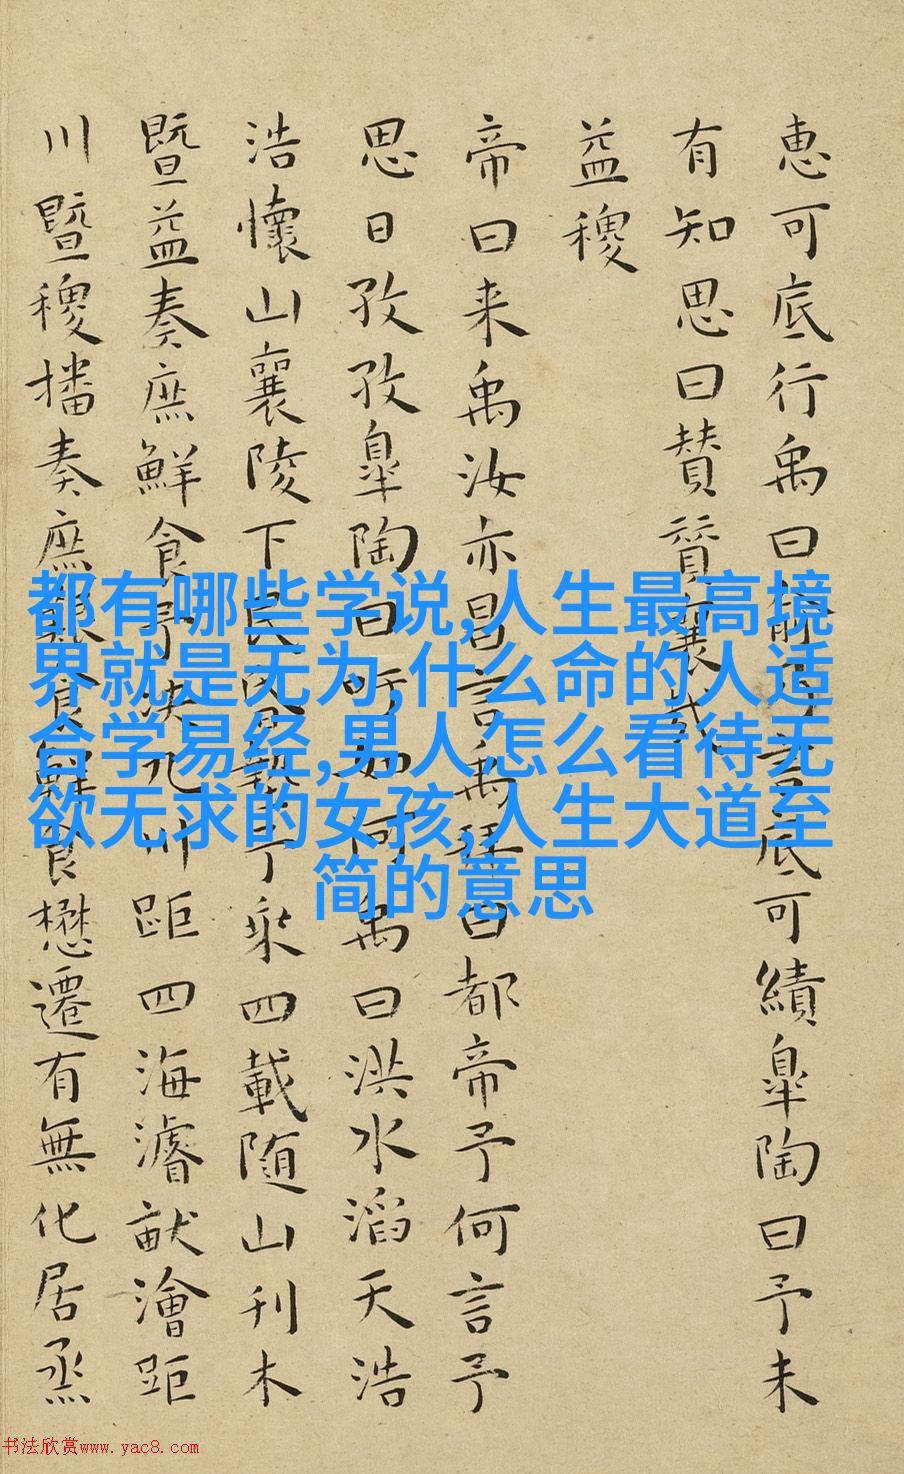 恵可底行禹曰言底可績皐陶曰予未
有知思曰賛賛襄哉
益稷
帝曰来禹汝亦昌言禹拜曰都帝予何言予
思日孜孜皐陶曰吁如何禹曰洪水滔天浩
浩懐山襄陵下民昏墊予乗四載随山刊木
暨益奏庶鮮食予决九川距四海濬畎澮距
川暨稷播奏庶艱食鮮食懋遷有無化居烝
都有哪些学说,人生最高境
界就是无为,什么命的人适
合学易经,男人怎么看待无
欲无求的女孩,人生大道至
简的意思
书法欣赏www.yac8.com